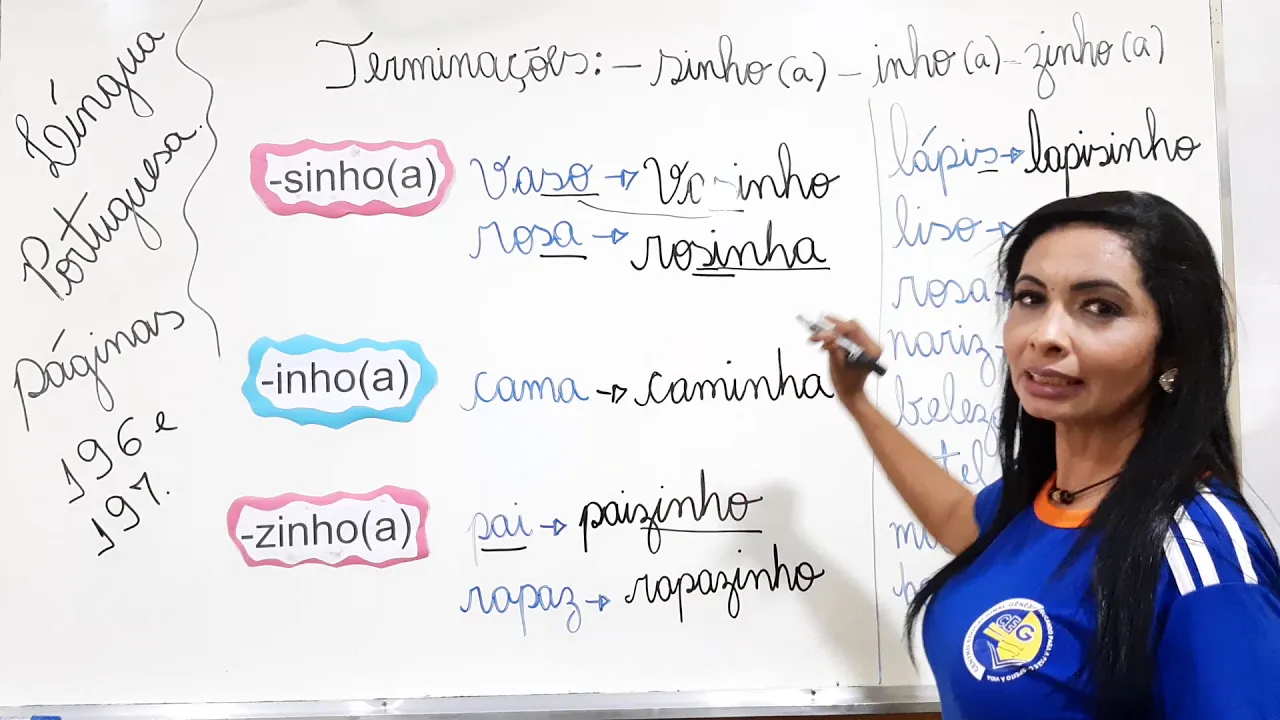 Língua
Portuguesa.
Páginas
196 e
197.
Terminações: - sinho(a) - inho(a) - zinho(a)
-sinho(a)
vaso → va inho
rosa → rosinha
-inho(a)
cama → caminha
-zinho(a)
pai → paizinho
rapaz → rapazinho
lápis → lapisinho
liso →
rosa →
nariz